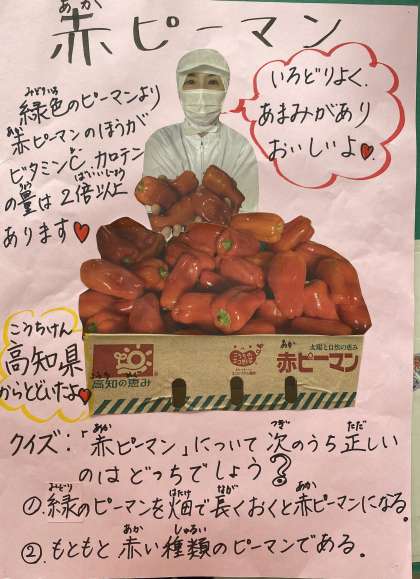 赤ピーマン
あか
いろどりよく、
あまみがあり
おいしいよ♥
緑色のピーマンより
みどりいろ
赤ピーマンのほうが
あか
ビタミンC、カロテン
シー
の量は2倍以上
りょう ばいいじょう
あります♥
こうちけん
高知県
からとどいたよ♥
高知の恵み
太陽と自然の恵み
あか
赤ピーマン
クイズ:「赤ピーマン」について次のうち正しい
あか つぎ ただ
のはどっちでしょう?
①緑のピーマンを畑で長くおくと赤ピーマンになる。
みどり はたけ なが あか
②もともと赤い種類のピーマンである。
あか しゅるい